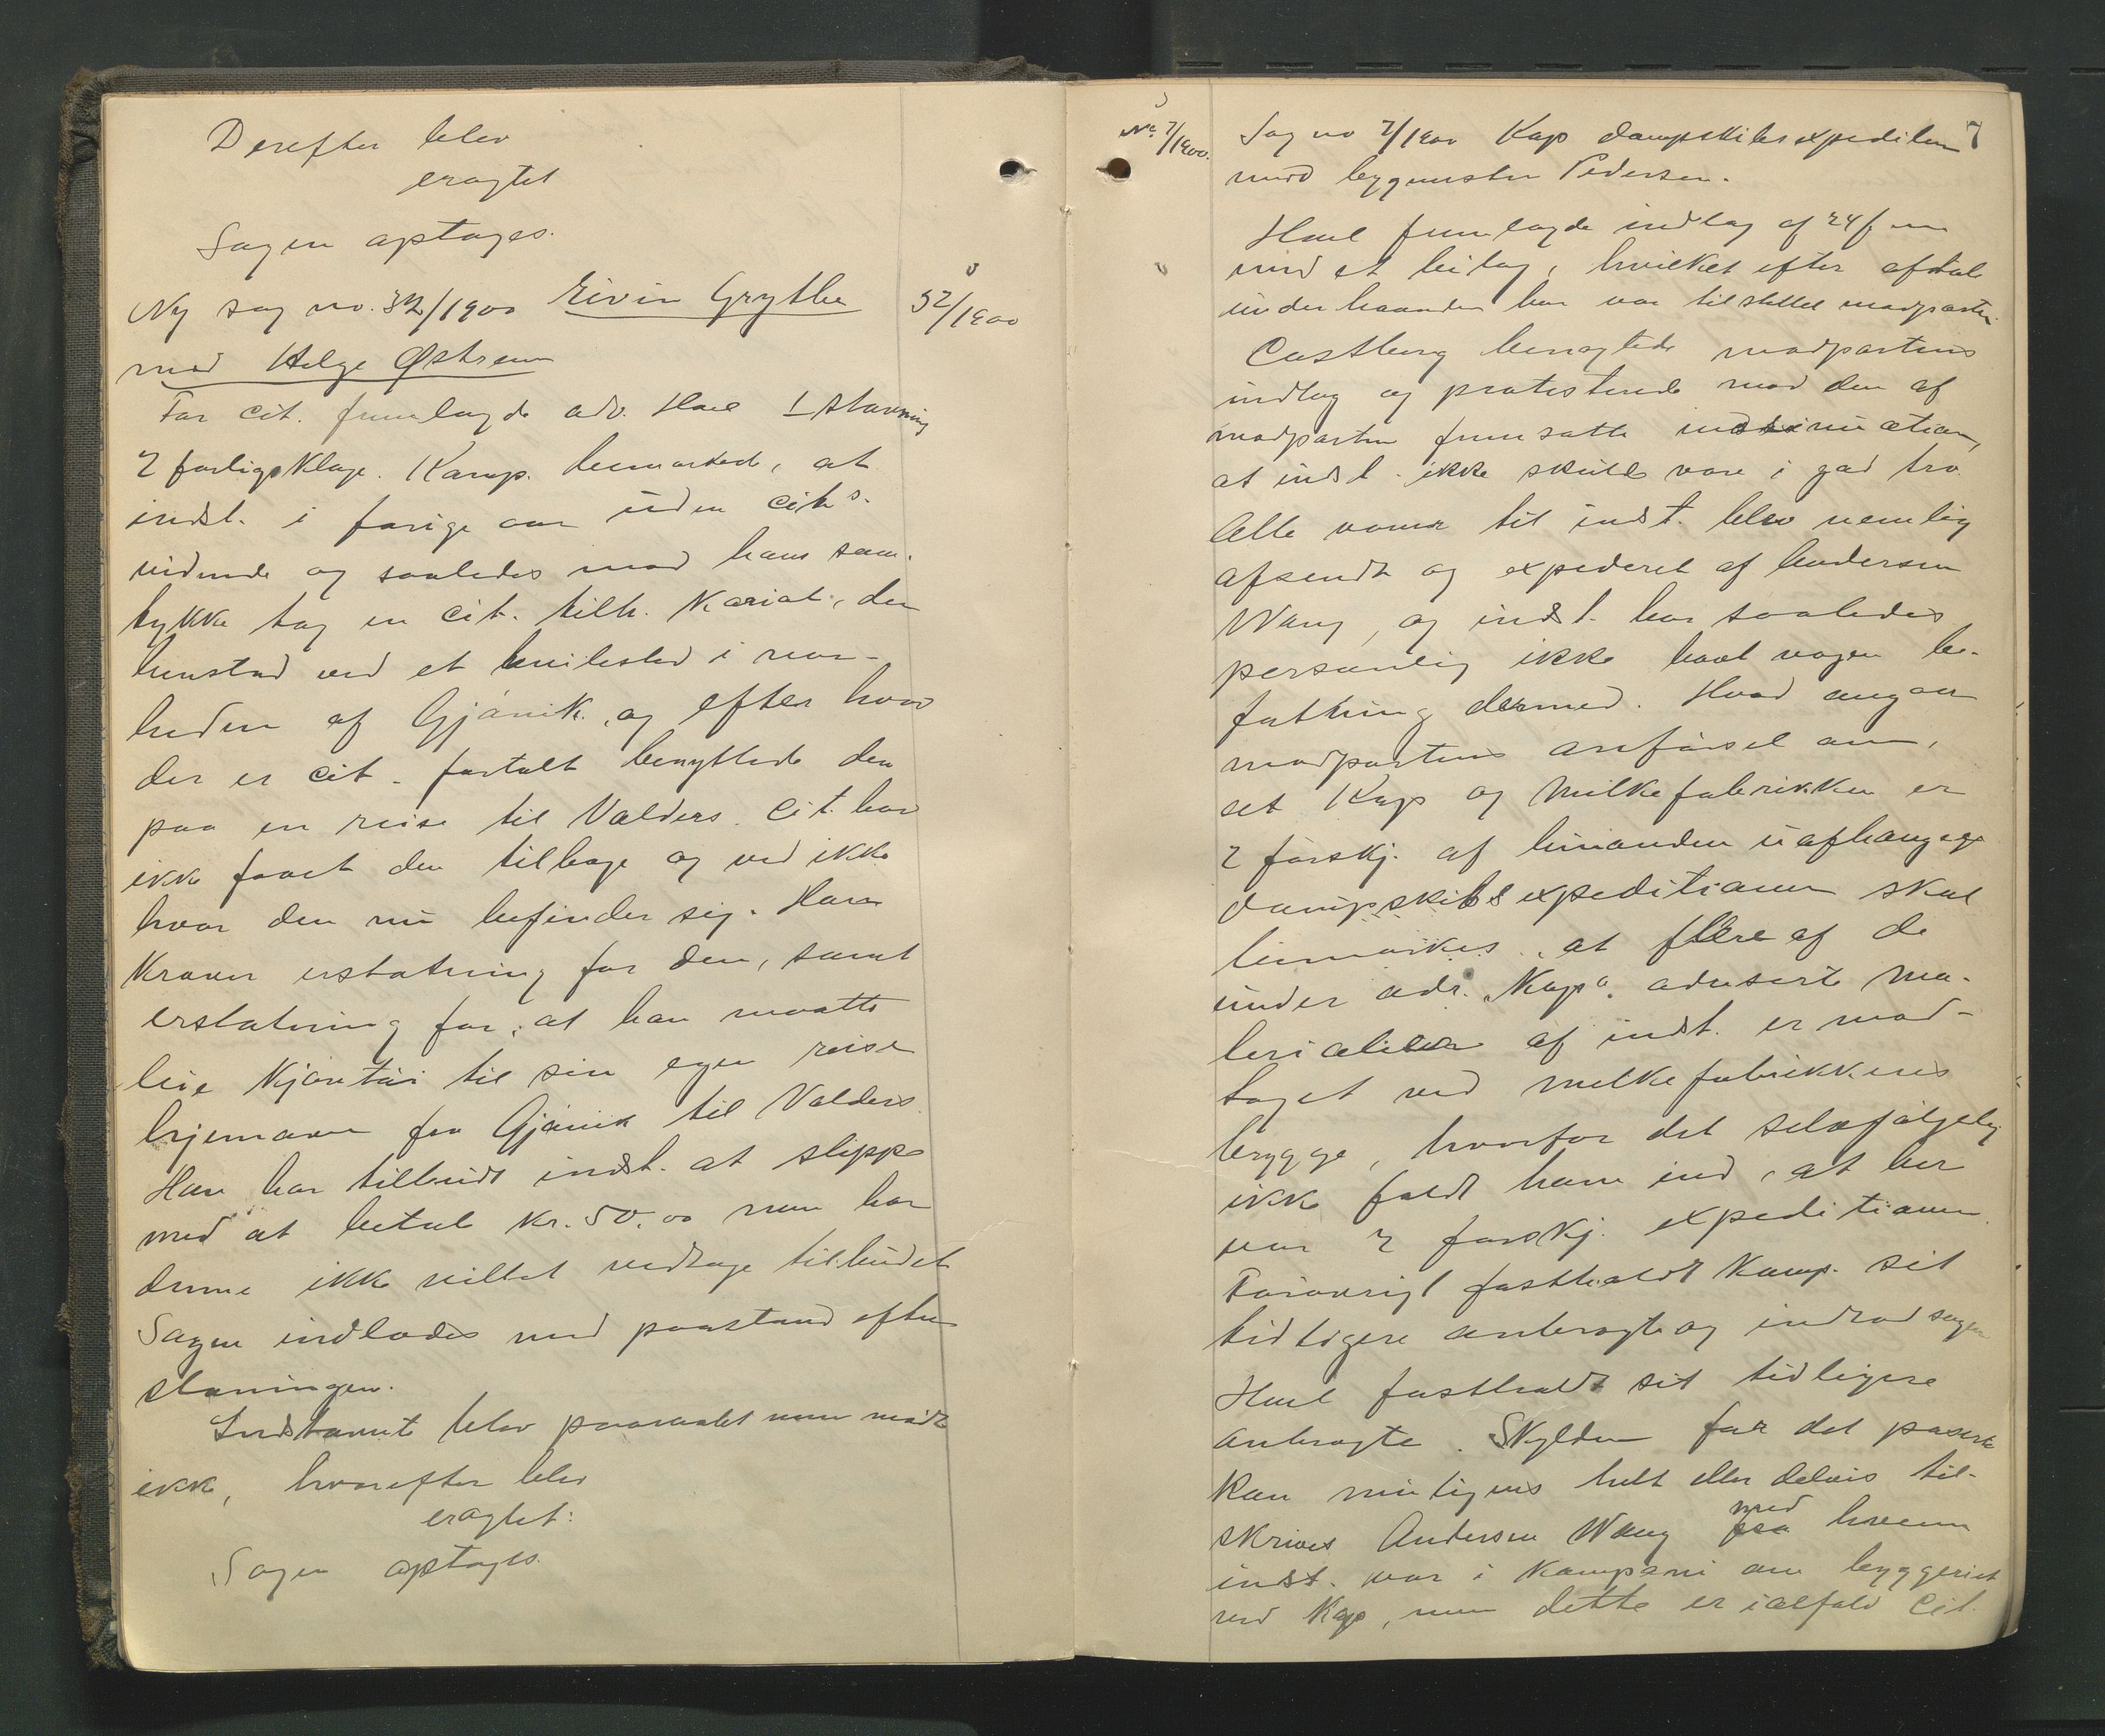 Derefter blev
eragtet
Sagen optages.
Ny sag no. 32/1900 Eivin Grythe
32/1900
mod Helge Østrem
For cit. fremlagde adv. Hoel 1 stævning
2 forligsklage. Komp. bemærked, at
indst. i forige aar uden cits.
vidende og saaledes mod hans sam-
tykke tog en cit. tilh. kariol, den
henstod ved et hvilested i nær-
heden af Gjøvik, og efter hvad
der er cit. fortalt benyttede den
paa en reise til Valders. Cit. har
ikke faaet den tilbage og ved ikke
hvor den nu befinder sig. Han
kræver erstatning for den, samt
erstatning for, at han maatte
leie kjøretøi til sin egen reise
hjemover fra Gjøvik til Valders.
Han har tilbudt indst. at slippe
med at betale kr. 50.00 men har
denne ikke villet vedtage tilbudet
Sagen indlodes med paastand efter
stævningen.
Indstævnte blev paaraabt men mødte
ikke, hvorefter blev
eragtet:
Sagen optages.
No. 7/1900.
7
Sag no 7/1900 Kap dampskibsexpedition
mod bygmester Pedersen.
Hoel fremlagde indlæg af 24/
med et bilag, hvilket efter aftale
underhaanden har vær tilstillet modparten.
Castberg benegtede modpartens
indlæg og protesterede mod den af
modparten fremsatte insinuation,
at indst. ikke skulde være i god tro.
Alle varer til indst. blev nemlig
afsendt og expederet af Andersen
Wang, og indst. har saaledes
personlig ikke havt nogen be-
fatning dermed. Hvad angaar
modpartens anførsel om,
at Kap og Melkefabrikken er
2 forskj. af hinanden uafhængige
dampskibsexpeditioner skal
bemærkes, at flere af de
under adr. "Kap". adreserte ma-
terialier af indst. er mod-
taget ved melkefabrikkens
brygge, hvorfor det selvfølgelig
ikke faldt ham ind, at her
var 2 forskj. expeditioner.
Forøvrigt fastholdt Komp. sit
tidligere anbragte og indlod sagen
Hoel fastholdt sit tidligere
anbragte. Skylden for det passerte
kan muligens helt eller delvis til-
skrives Andersen Wang med hvem
indst. var i kompani om byggeriet
ved Kap, men dette er ialfald cit.